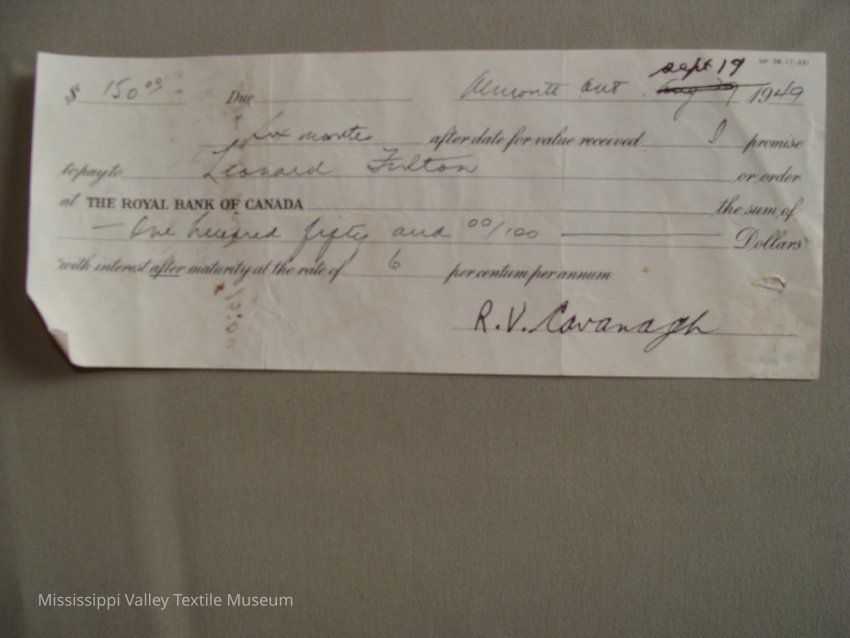 SF 36 (7-33)
sept. 19
$ 150 00 Due Almonte Ont Aug 1949
Six months after date for value received I promise
to pay to Leonard Fulton or order
at THE ROYAL BANK OF CANADA the sum of
One hundred fifty and 00/100 Dollars
with interest after maturity at the rate of 6 per centum per annum.
R. V. Cavanagh
Mississippi Valley Textile Museum